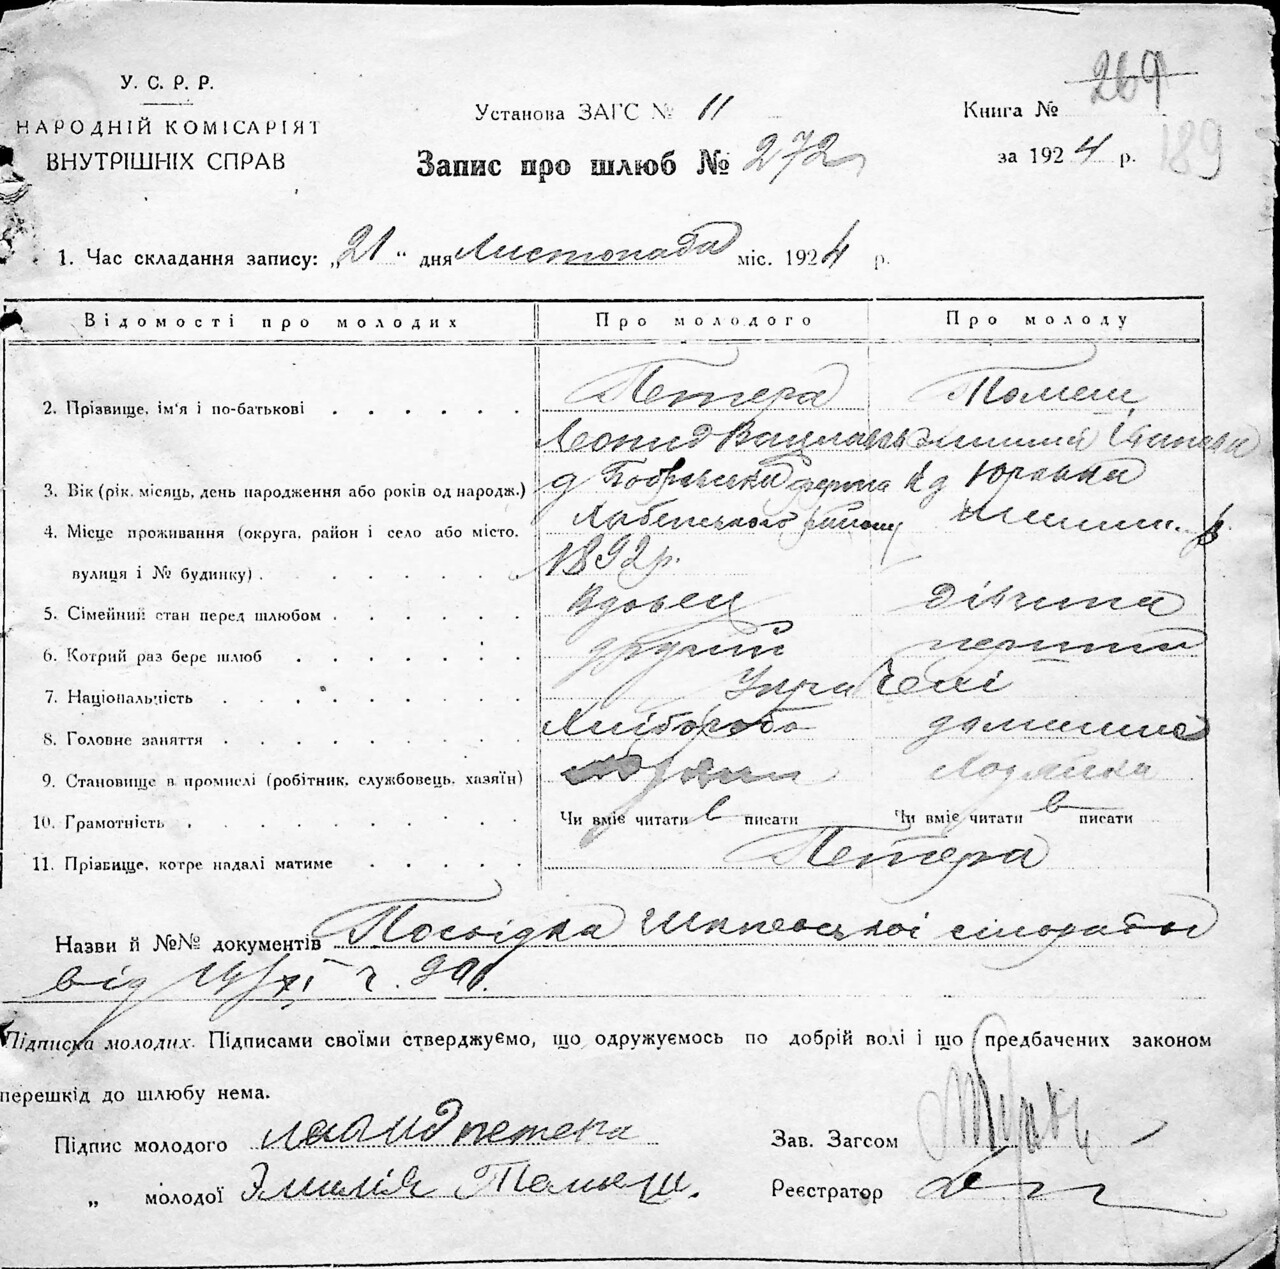 У. С. Р. Р.
НАРОДНІЙ КОМІСАРІЯТ
ВНУТРІШНІХ СПРАВ
Установа ЗАГС № 11
Запис про шлюб № 272
Книга № 269
за 1924 р. 189
1. Час складання запису: „21“ дня Листопада міс. 1924 р.
Відомості про молодих Про молодого Про молоду
2. Прізвище, ім'я і по-батькові Петера Томеш
Леонид
3. Вік (рік, місяць, день народження або років од народж.) д
4. Місце проживання (округа, район і село або місто, району
вулиця і № будинку) 1892 р.
5. Сімейний стан перед шлюбом Вдовец дівчина
6. Котрий раз бере шлюб другий перший
7. Національність
8. Головне заняття Хлібороб домашне
9. Становище в промислі (робітник, службовець, хазяїн)
10. Грамотність Чи вміє читати в писати Чи вміє читати в писати
11. Прізвище, котре надалі матиме Петера
Назви й №№ документів Посвідка сільради
від
Підписка молодих. Підписами своїми стверджуємо, що одружуємось по добрій волі і що предбачених законом
перешкід до шлюбу нема.
Підпис молодого петера
Зав. Загсом
„ молодої Эмилія Томеш.
Реєстратор